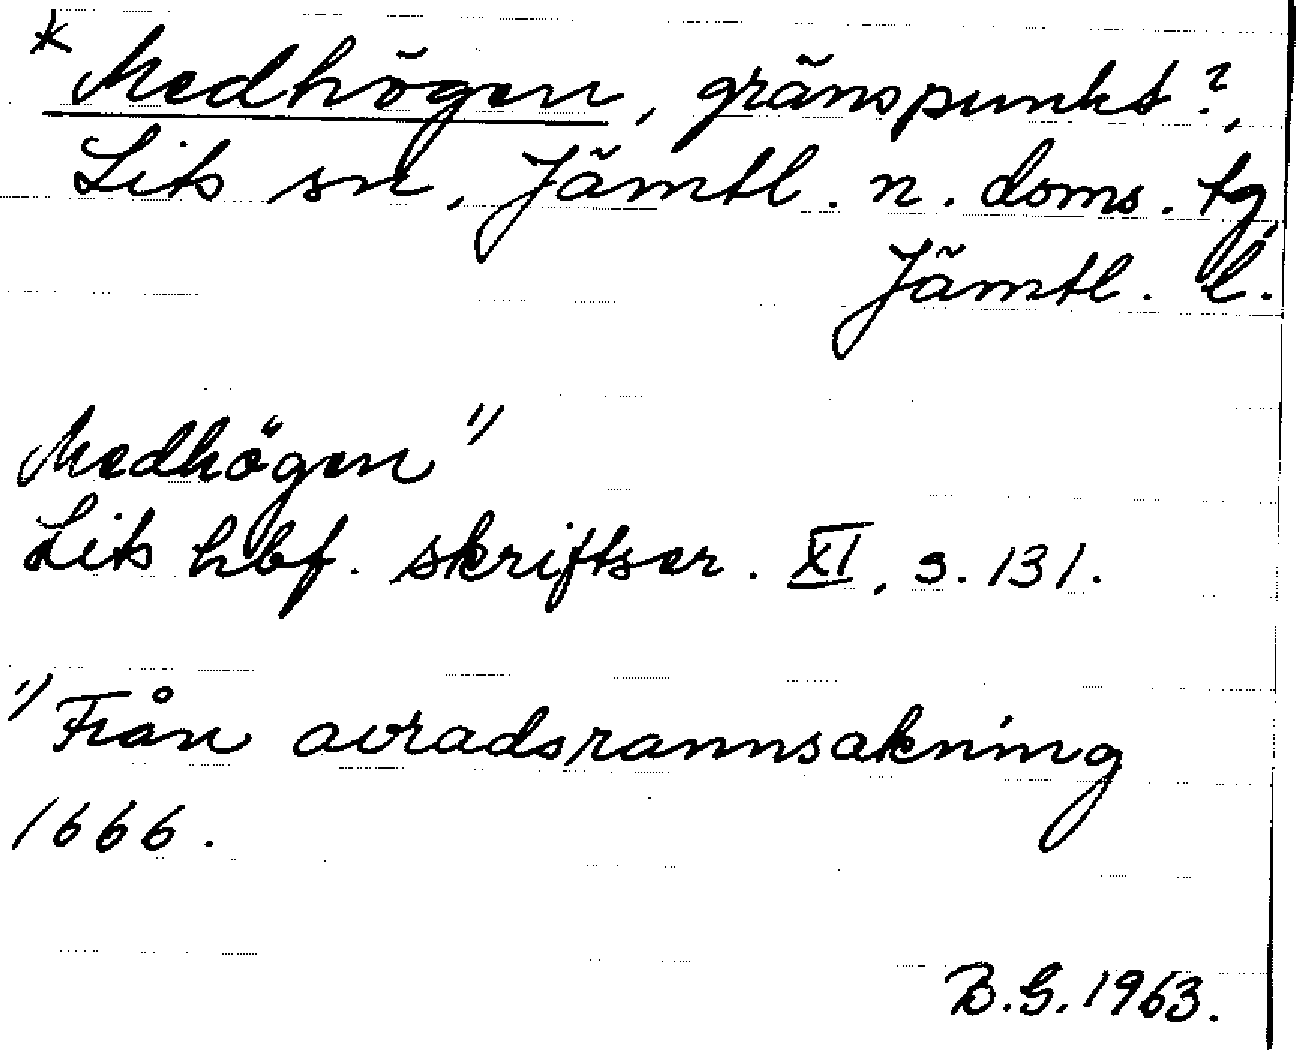 * Medhögen, gränspunkt?,
Lits sn, Jämtl. n. doms. tg,
Jämtl. l.
Medhögen 1)
Lits hbf. skriftser. XI, s. 131.
1) Från avradsrannsakning
1666.
B.G. 1963.